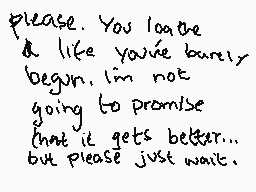 please. You loathe
a life you've barely
begun. i'm not
going to promise
that it gets better...
but please just wait.